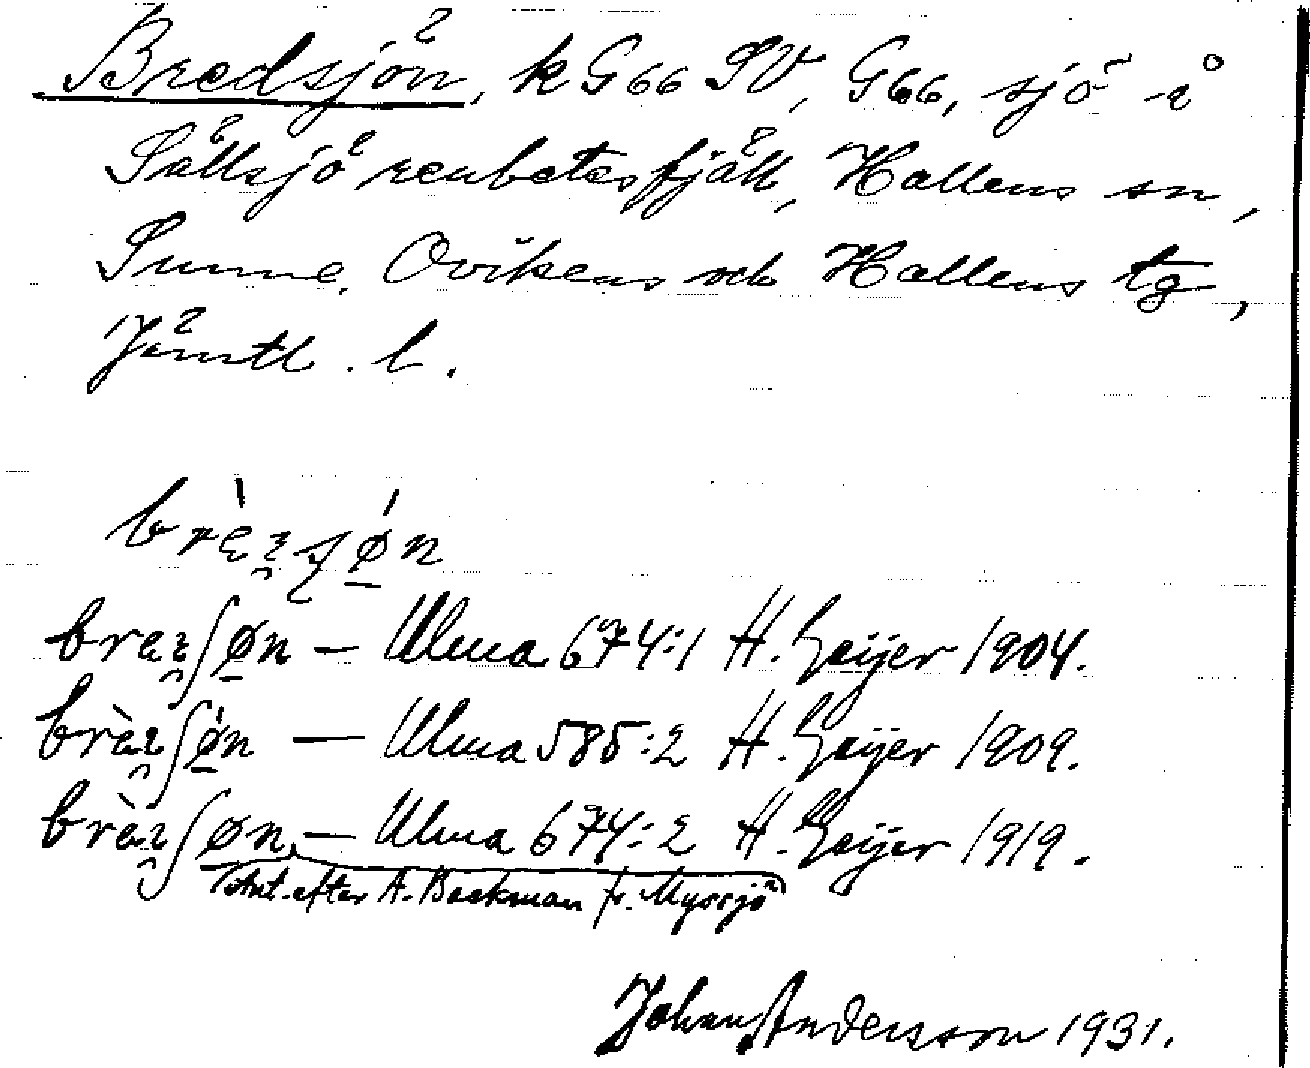 Bredsjön, k G66 SV, G66, sjö i
Sällsjö renbetesfjäll, Hallens sn,
Sunne, Ovikens och Hallens tg,
Jämtl. l.
— Ulma 674:1 H. Geijer 1904.
— Ulma 585:2 H. Geijer 1909.
— Ulma 674:2 H. Geijer 1919.
Ant. efter A. Backman fr. Myssjö
Johan Andersson 1931.